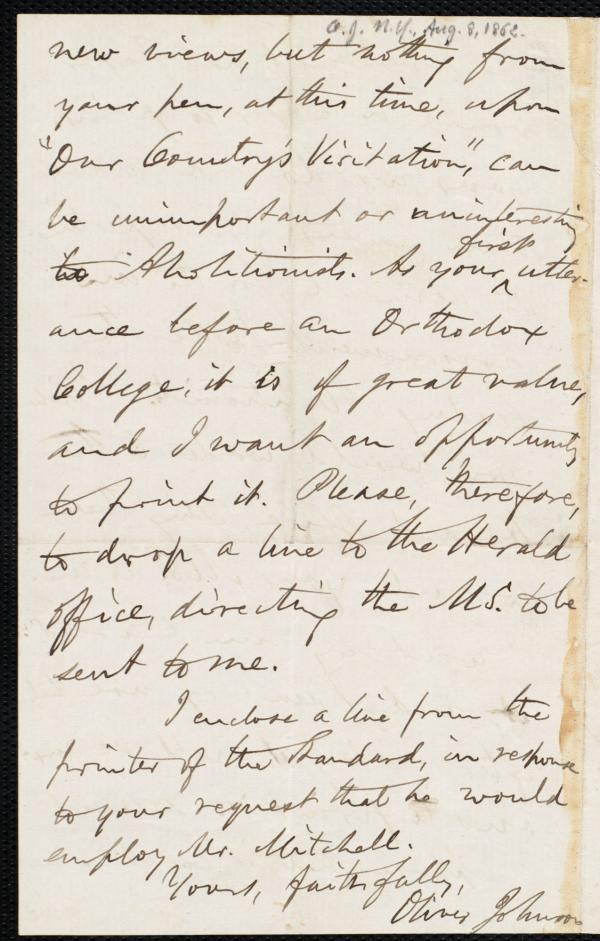 O. J. N.Y., Aug. 8, 1862.
new views, but nothing from
your pen, at this time, upon
"Our Country's Visitation", can
be unimportant or uninteresting
to Abolitionists. As your first utter-
ance before an Orthodox
College, it is of great value,
and I want an opportunity
to print it. Please, therefore,
to drop a line to the Herald
office, directing the MS. to be
sent to me.
I enclose a line from the
printer of the Standard, in response
to your request that he would
employ Mr. Mitchell.
Yours, faithfully,
Oliver Johnson